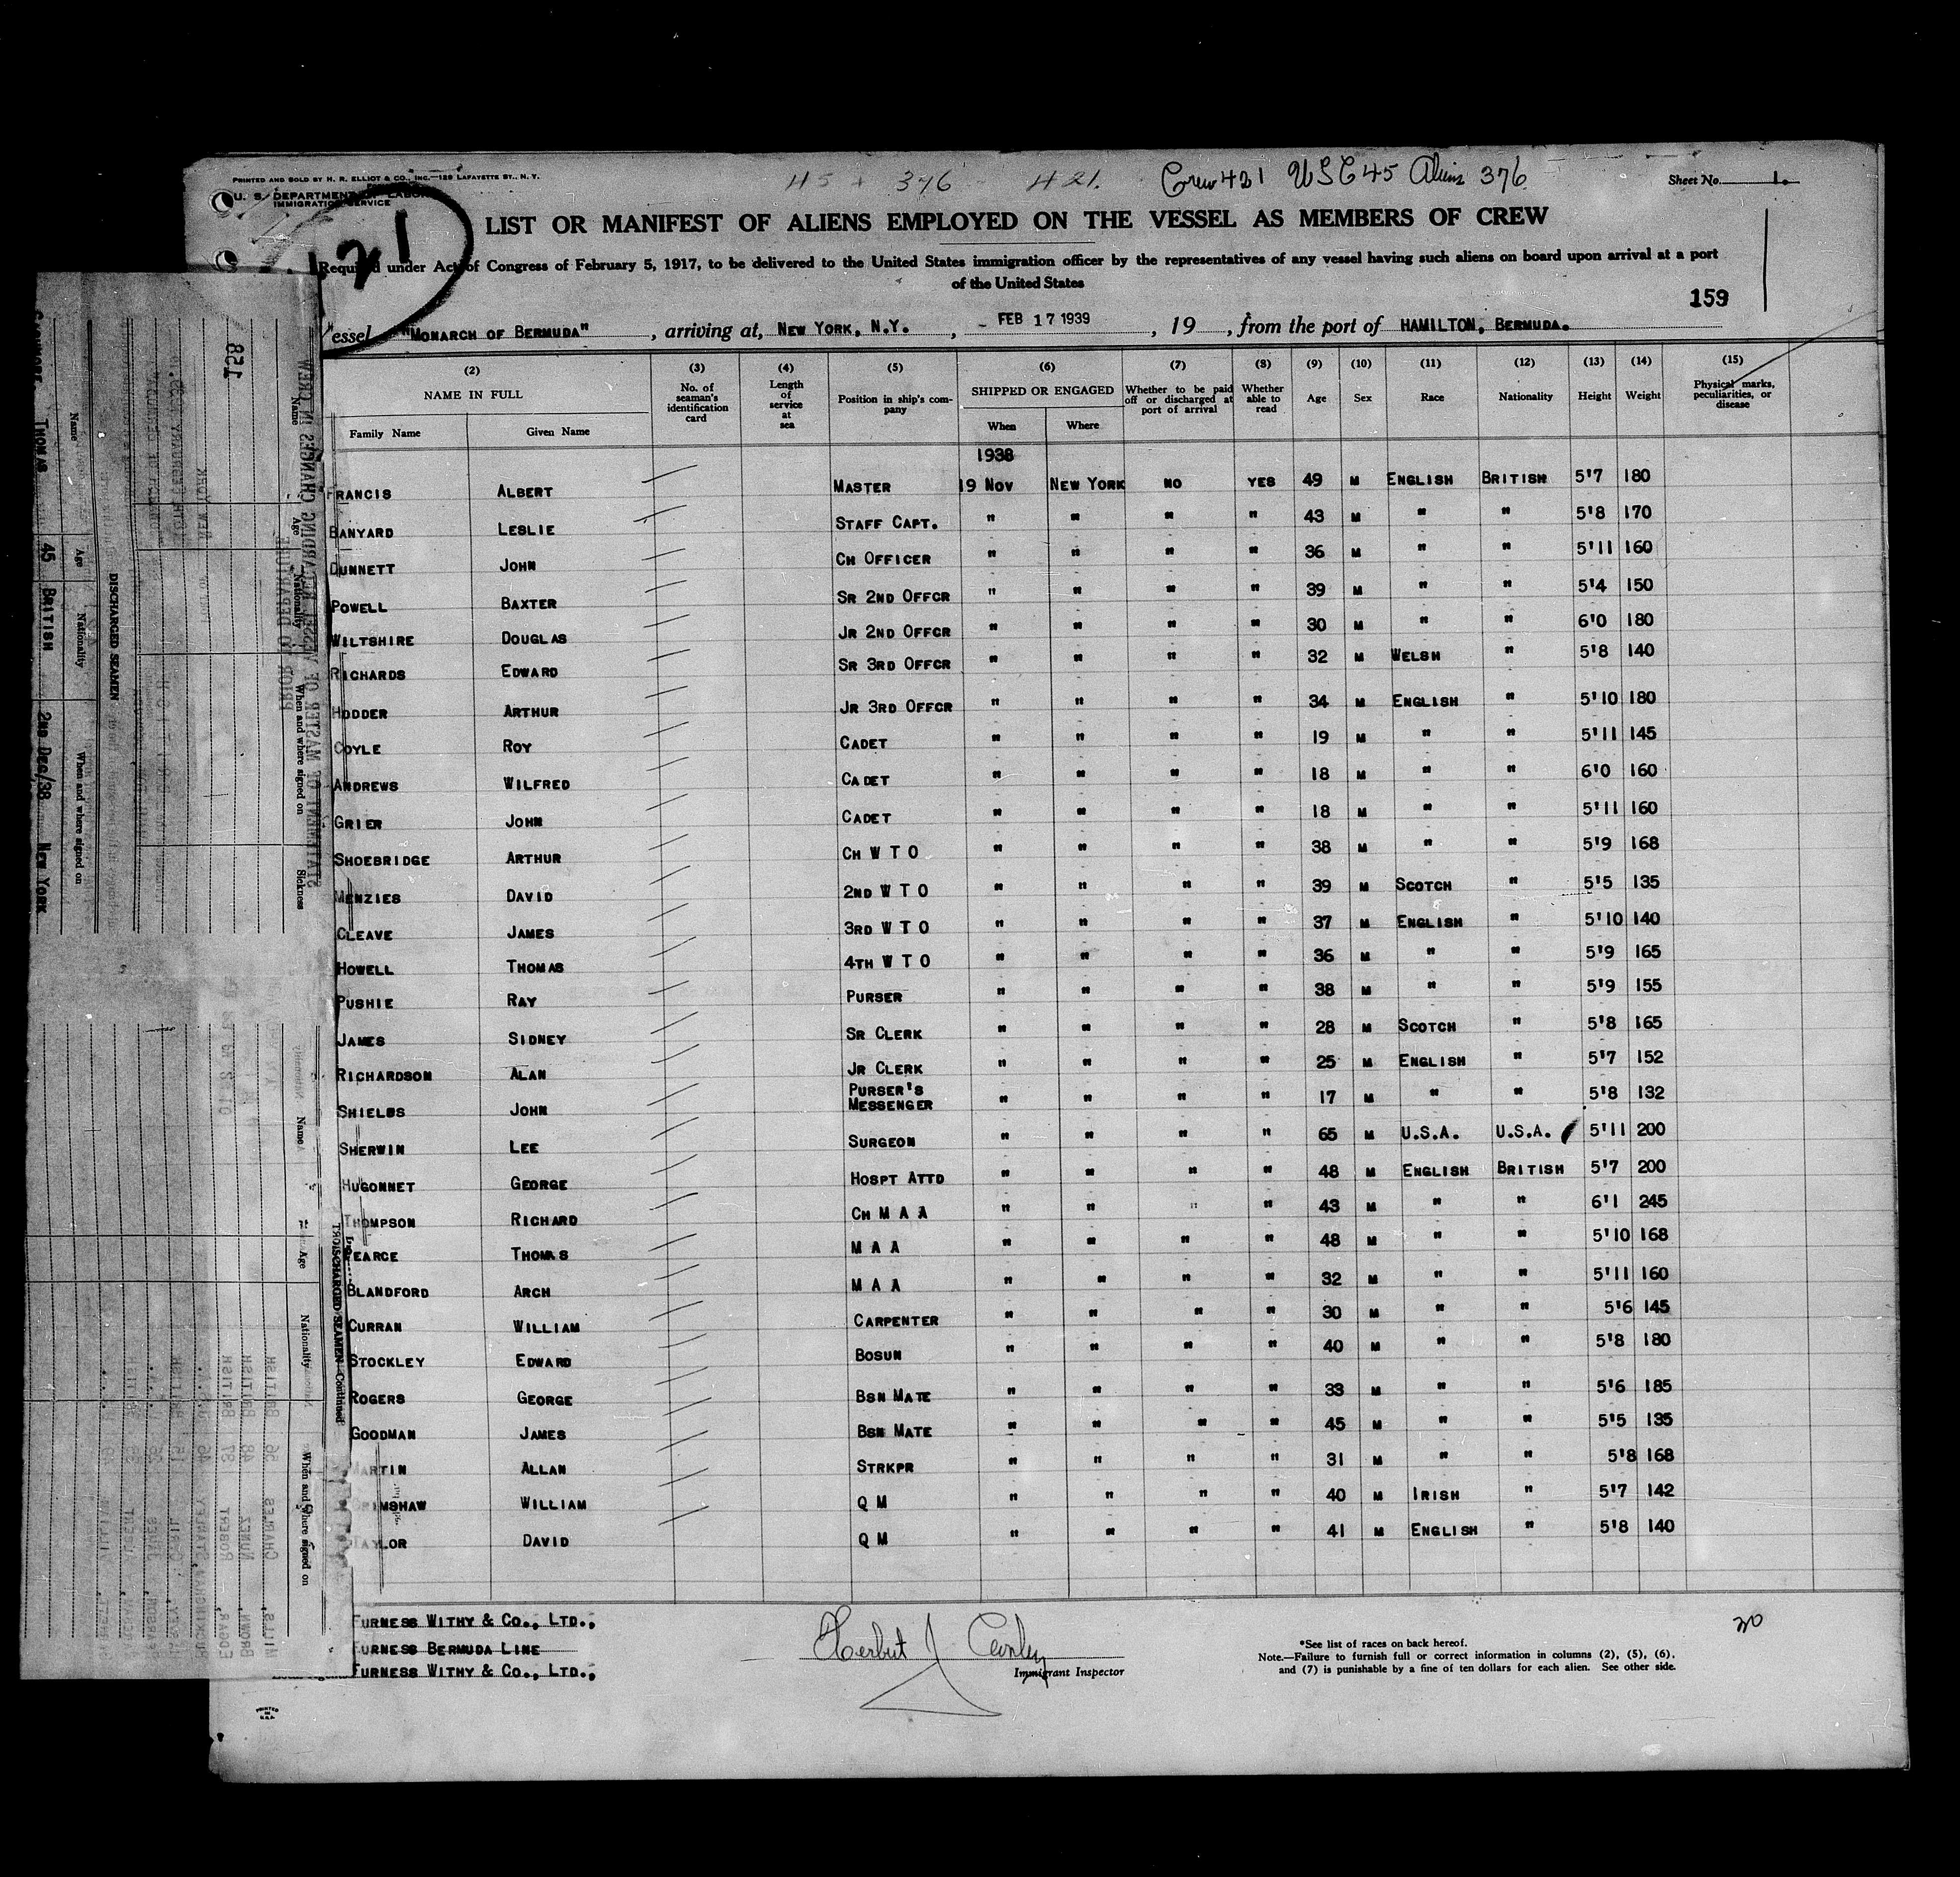 PRINTED AND SOLD BY H. R. ELLIOT & CO., INC.—129 LAFAYETTE ST., N. Y.
45 + 376 421. Crew 421 USC 45 Aliens 376
Sheet No. 1.
U. S. DEPARTMENT OF LABOR
IMMIGRATION SERVICE
LIST OR MANIFEST OF ALIENS EMPLOYED ON THE VESSEL AS MEMBERS OF CREW
121
Required under Act of Congress of February 5, 1917, to be delivered to the United States immigration officer by the representatives of any vessel having such aliens on board upon arrival at a port
of the United States
159
Vessel "MONARCH OF BERMUDA", arriving at, NEW YORK, N.Y., FEB 17 1939, 19, from the port of HAMILTON, BERMUDA.
(2) (3) (4) (5) (6) (7) (8) (9) (10) (11) (12) (13) (14) (15)
NAME IN FULL | No. of seaman's identification card | Length of service at sea | Position in ship's company | SHIPPED OR ENGAGED | Whether to be paid off or discharged at port of arrival | Whether able to read | Age | Sex | Race | Nationality | Height | Weight | Physical marks, peculiarities, or disease
Family Name | Given Name | When | Where
1938
FRANCIS ALBERT MASTER 19 NOV NEW YORK NO YES 49 M ENGLISH BRITISH 5'7 180
BANYARD LESLIE STAFF CAPT. " " " " 43 M " " 5'8 170
DUNNETT JOHN CH OFFICER " " " " 36 M " " 5'11 160
POWELL BAXTER SR 2ND OFFCR " " " " 39 M " " 5'4 150
WILTSHIRE DOUGLAS JR 2ND OFFCR " " " " 30 M " " 6'0 180
RICHARDS EDWARD SR 3RD OFFCR " " " " 32 M WELSH " 5'8 140
HODDER ARTHUR JR 3RD OFFCR " " " " 34 M ENGLISH " 5'10 180
COYLE ROY CADET " " " " 19 M " " 5'11 145
ANDREWS WILFRED CADET " " " " 18 M " " 6'0 160
GRIER JOHN CADET " " " " 18 M " " 5'11 160
SHOEBRIDGE ARTHUR CH W T O " " " " 38 M " " 5'9 168
MENZIES DAVID 2ND W T O " " " " 39 M SCOTCH " 5'5 135
CLEAVE JAMES 3RD W T O " " " " 37 M ENGLISH " 5'10 140
HOWELL THOMAS 4TH W T O " " " " 36 M " " 5'9 165
PUSHIE RAY PURSER " " " " 38 M " " 5'9 155
JAMES SIDNEY SR CLERK " " " " 28 M SCOTCH " 5'8 165
RICHARDSON ALAN JR CLERK " " " " 25 M ENGLISH " 5'7 152
SHIELDS JOHN PURSER'S MESSENGER " " " " 17 M " " 5'8 132
SHERWIN LEE SURGEON " " " " 65 M U.S.A. U.S.A. 5'11 200
HUGONNET GEORGE HOSPT ATTD " " " " 48 M ENGLISH BRITISH 5'7 200
THOMPSON RICHARD CH M A A " " " " 43 M " " 6'1 245
PEARCE THOMAS M A A " " " " 48 M " " 5'10 168
BLANDFORD ARCH M A A " " " " 32 M " " 5'11 160
CURRAN WILLIAM CARPENTER " " " " 30 M " " 5'6 145
STOCKLEY EDWARD BOSUN " " " " 40 M " " 5'8 180
ROGERS GEORGE BSN MATE " " " " 33 M " " 5'6 185
GOODMAN JAMES BSN MATE " " " " 45 M " " 5'5 135
MARTIN ALLAN STRKPR " " " " 31 M " " 5'8 168
GRIMSHAW WILLIAM Q M " " " " 40 M IRISH " 5'7 142
TAYLOR DAVID Q M " " " " 41 M ENGLISH " 5'8 140
FURNESS WITHY & CO., LTD.,
FURNESS BERMUDA LINE
FURNESS WITHY & CO., LTD.,
Immigrant Inspector
*See list of races on back hereof.
Note.—Failure to furnish full or correct information in columns (2), (5), (6), and (7) is punishable by a fine of ten dollars for each alien. See other side.
30
PRINTED IN U.S.A.
158
STATEMENT OF MASTER OF VESSEL REGARDING CHANGES IN CREW
PRIOR TO DEPARTURE
NEW YORK
Name Age Nationality When and where signed on Sickness
DISCHARGED SEAMEN
Name Age Nationality When and where signed on
THOMAS 45 BRITISH 2ND DEC/38 NEW YORK
DISCHARGED SEAMEN—Continued
Name Age Nationality When and where signed on
MILLS, CHARLES 56 BRITISH
BROWN, NUNEZ 48 BRITISH
EDGAR, ROBERT 37 BRITISH
BUCKINGHAM, STANLEY